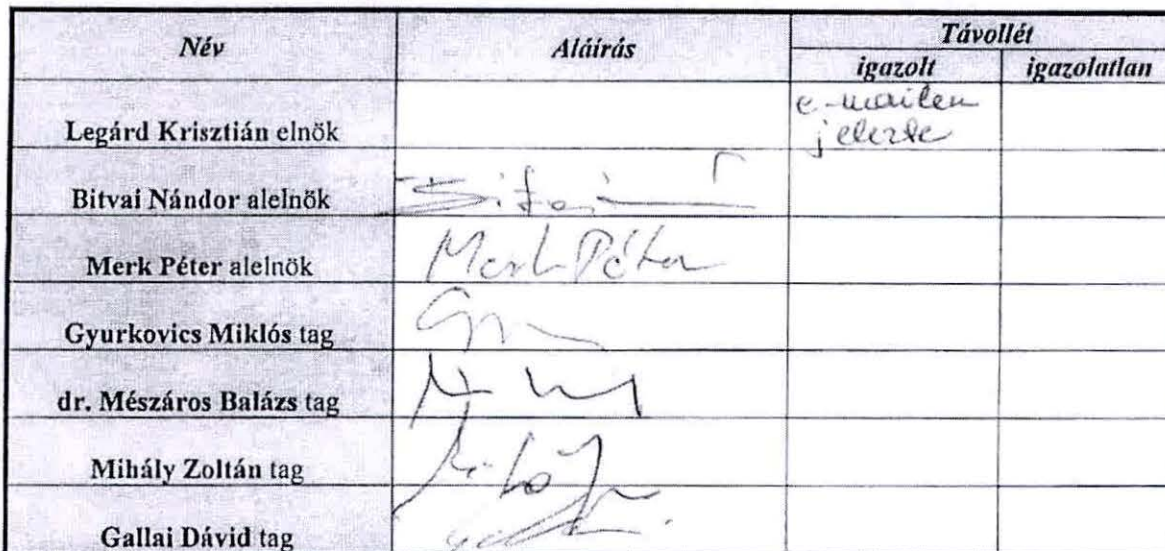 Név Aláírás Távollét
igazolt igazolatlan
e-mailen
Legárd Krisztián elnök jelezte
Bitvai Nándor alelnök
Merk Péter alelnök Merk Péter
Gyurkovics Miklós tag
dr. Mészáros Balázs tag
Mihály Zoltán tag
Gallai Dávid tag